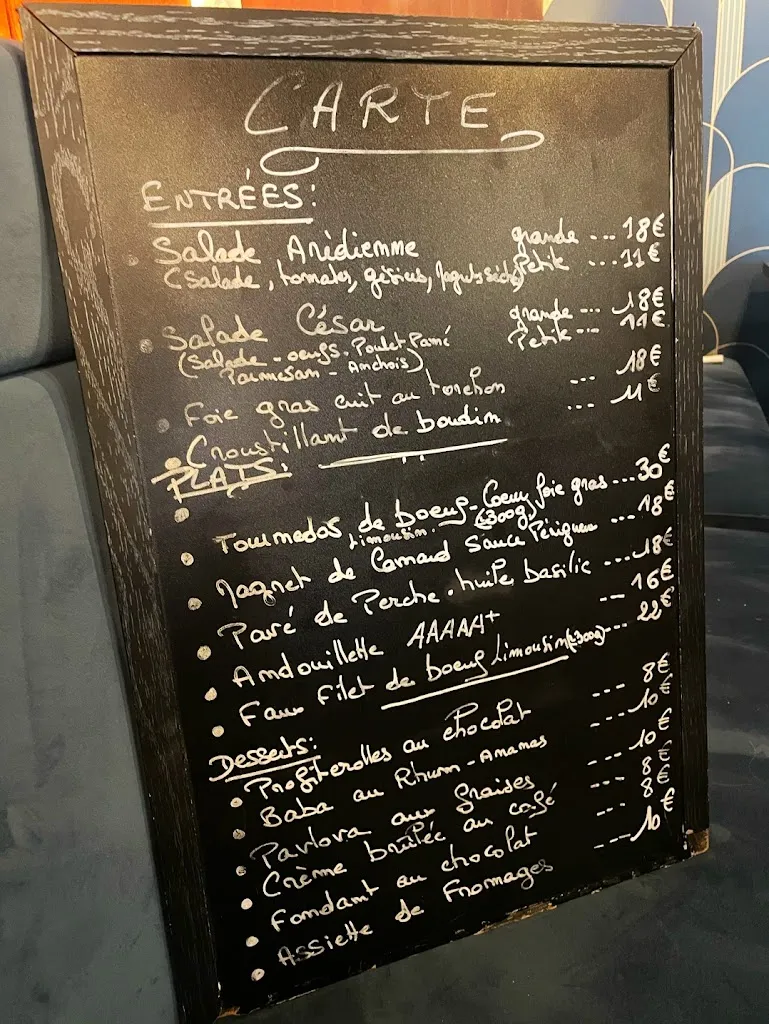 CARTE
ENTRÉES:
Salade Arédienne grande ... 18€
(Salade, tomates, gésiers, magrets séchés) Petite ... 11€
Salade César grande ... 18€
(Salade - oeufs - Poulet Pané Petite ... 11€
Parmesan - Anchois)
Foie gras cuit au torchon ... 18€
Croustillant de boudin ... 11€
PLATS:
Tournedos de boeuf - Coeur foie gras ... 30€
Limousin (±300g)
Magret de Canard Sauce Périgueux ... 18€
Pavé de Perche - huile basilic ... 18€
Andouillette AAAAA+ -- 16€
Faux Filet de boeuf Limousin (±300g) ... 22€
Desserts:
Profiterolles au chocolat --- 8€
Baba au Rhum - Ananas --- 10€
Pavlova aux fraises --- 10€
Crème brûlée au café --- 8€
Fondant au chocolat --- 8€
Assiette de Fromages --- 10€